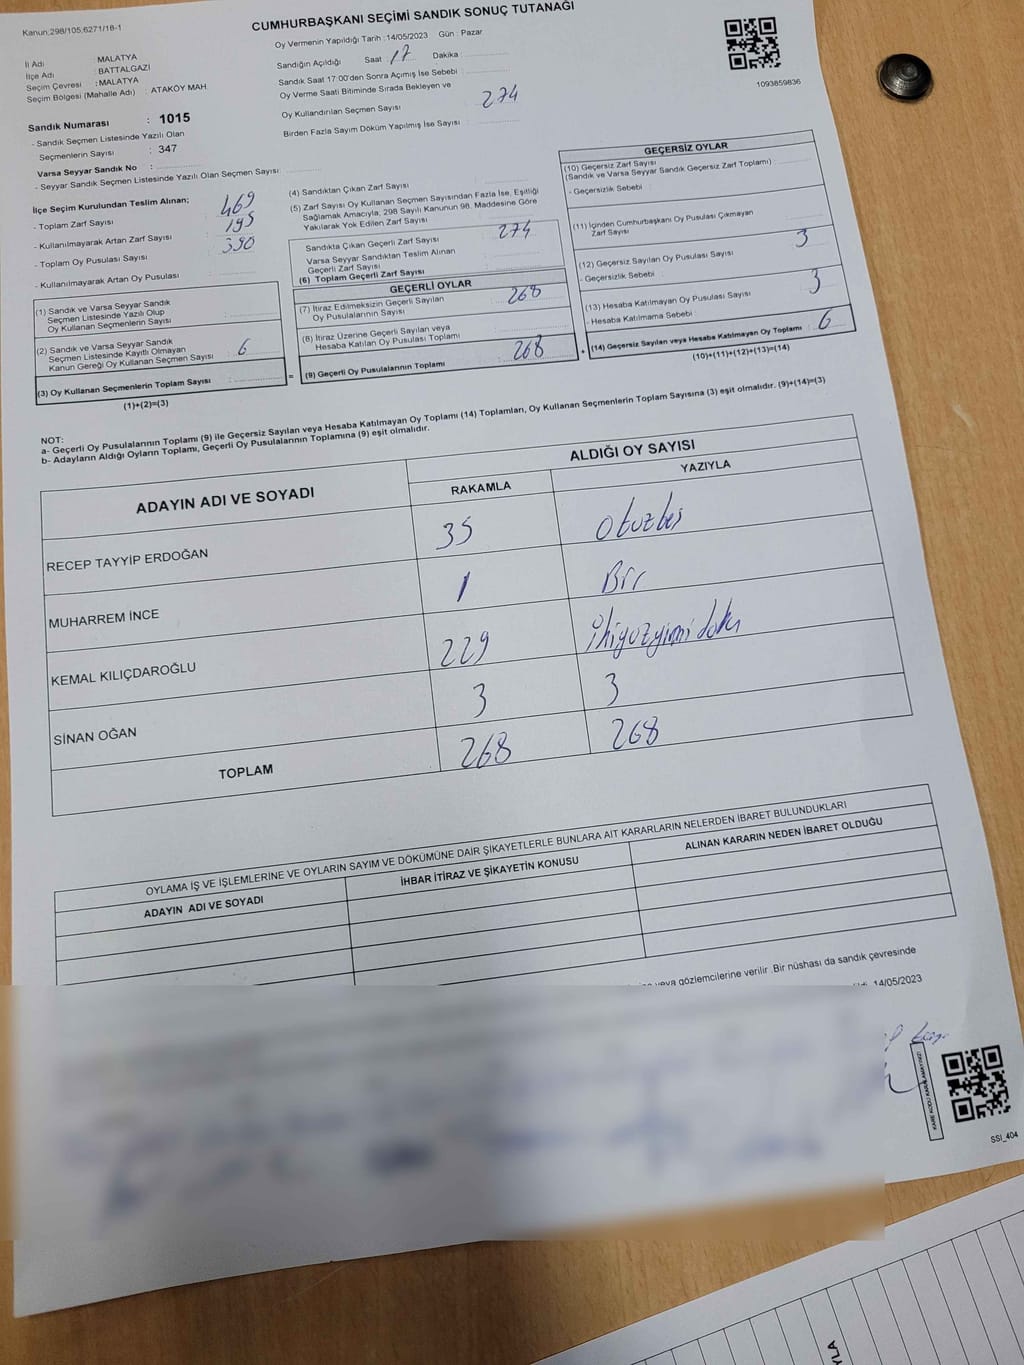 Kanun:298/105;6271/18-1
CUMHURBAŞKANI SEÇİMİ SANDIK SONUÇ TUTANAĞI
İl Adı : MALATYA
İlçe Adı : BATTALGAZİ
Seçim Çevresi : MALATYA
Seçim Bölgesi (Mahalle Adı) : ATAKÖY MAH.
Sandık Numarası : 1015
- Sandık Seçmen Listesinde Yazılı Olan
Seçmenlerin Sayısı : 347
Varsa Seyyar Sandık No :
- Seyyar Sandık Seçmen Listesinde Yazılı Olan Seçmen Sayısı:
Oy Vermenin Yapıldığı Tarih :14/05/2023 Gün : Pazar
Sandığın Açıldığı Saat 17 Dakika :
Sandık Saat 17:00'den Sonra Açımış İse Sebebi :
Oy Verme Saati Bitiminde Sırada Bekleyen ve
Oy Kullandırılan Seçmen Sayısı : 274
Birden Fazla Sayım Döküm Yapılmış İse Sayısı :
1093859836
İlçe Seçim Kurulundan Teslim Alınan;
- Toplam Zarf Sayısı : 469
- Kullanılmayarak Artan Zarf Sayısı : 195
- Toplam Oy Pusulası Sayısı : 390
- Kullanılmayarak Artan Oy Pusulası :
(1) Sandık ve Varsa Seyyar Sandık
Seçmen Listesinde Yazılı Olup
Oy Kullanan Seçmenlerin Sayısı :
(2) Sandık ve Varsa Seyyar Sandık
Seçmen Listesinde Kayıtlı Olmayan
Kanun Gereği Oy Kullanan Seçmen Sayısı : 6
(3) Oy Kullanan Seçmenlerin Toplam Sayısı :
(1)+(2)=(3)
(4) Sandıktan Çıkan Zarf Sayısı
(5) Zarf Sayısı Oy Kullanan Seçmen Sayısından Fazla İse, Eşitliği
Sağlamak Amacıyla, 298 Sayılı Kanunun 98. Maddesine Göre
Yakılarak Yok Edilen Zarf Sayısı :
Sandıkta Çıkan Geçerli Zarf Sayısı : 274
Varsa Seyyar Sandıktan Teslim Alınan
Geçerli Zarf Sayısı :
(6) Toplam Geçerli Zarf Sayısı :
GEÇERLİ OYLAR
(7) İtiraz Edilmeksizin Geçerli Sayılan
Oy Pusulalarının Sayısı : 268
(8) İtiraz Üzerine Geçerli Sayılan veya
Hesaba Katılan Oy Pusulası Toplamı :
= (9) Geçerli Oy Pusulalarının Toplamı : 268
GEÇERSİZ OYLAR
(10) Geçersiz Zarf Sayısı
(Sandık ve Varsa Seyyar Sandık Geçersiz Zarf Toplamı) :
- Geçersizlik Sebebi :
(11) İçinden Cumhurbaşkanı Oy Pusulası Çıkmayan
Zarf Sayısı :
(12) Geçersiz Sayılan Oy Pusulası Sayısı : 3
- Geçersizlik Sebebi :
(13) Hesaba Katılmayan Oy Pusulası Sayısı : 3
- Hesaba Katılmama Sebebi :
+ (14) Geçersiz Sayılan veya Hesaba Katılmayan Oy Toplamı : 6
(10)+(11)+(12)+(13)=(14)
NOT:
a- Geçerli Oy Pusulalarının Toplamı (9) ile Geçersiz Sayılan veya Hesaba Katılmayan Oy Toplamı (14) Toplamları, Oy Kullanan Seçmenlerin Toplam Sayısına (3) eşit olmalıdır. (9)+(14)=(3)
b- Adayların Aldığı Oyların Toplamı, Geçerli Oy Pusulalarının Toplamına (9) eşit olmalıdır.
ADAYIN ADI VE SOYADI
ALDIĞI OY SAYISI
RAKAMLA YAZIYLA
RECEP TAYYİP ERDOĞAN 35 otuzbeş
MUHARREM İNCE 1 Bir
KEMAL KILIÇDAROĞLU 229 ikiyüzyirmi doku
SİNAN OĞAN 3 3
TOPLAM 268 268
OYLAMA İŞ VE İŞLEMLERİNE VE OYLARIN SAYIM VE DÖKÜMÜNE DAİR ŞİKAYETLERLE BUNLARA AİT KARARLARIN NELERDEN İBARET BULUNDUKLARI
ADAYIN ADI VE SOYADI İHBAR İTİRAZ VE ŞİKAYETİN KONUSU ALINAN KARARIN NEDEN İBARET OLDUĞU
veya gözlemcilerine verilir .Bir nüshası da sandık çevresinde
14/05/2023
SSİ_404